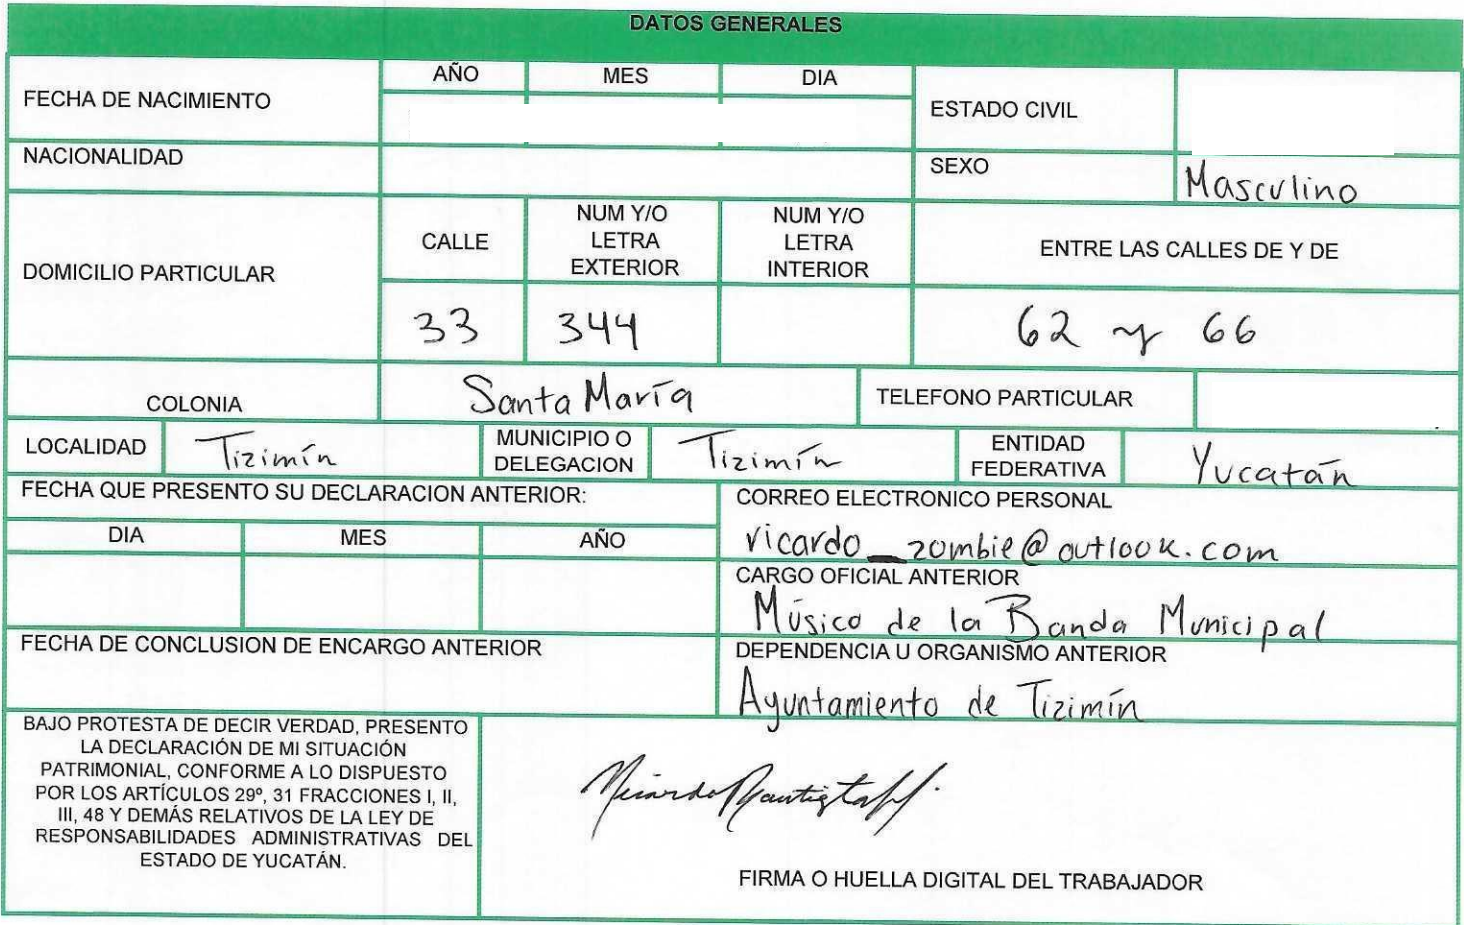 DATOS GENERALES
FECHA DE NACIMIENTO
AÑO MES DIA
ESTADO CIVIL
NACIONALIDAD
SEXO Masculino
DOMICILIO PARTICULAR
CALLE
NUM Y/O
LETRA
EXTERIOR
NUM Y/O
LETRA
INTERIOR
ENTRE LAS CALLES DE Y DE
33 344 62 y 66
COLONIA Santa María TELEFONO PARTICULAR
LOCALIDAD Tizimín
MUNICIPIO O
DELEGACION
Tizimín
ENTIDAD
FEDERATIVA
Yucatán
FECHA QUE PRESENTO SU DECLARACION ANTERIOR:
DIA MES AÑO
CORREO ELECTRONICO PERSONAL
ricardo_zombie@outlook.com
CARGO OFICIAL ANTERIOR
Músico de la Banda Municipal
FECHA DE CONCLUSION DE ENCARGO ANTERIOR
DEPENDENCIA U ORGANISMO ANTERIOR
Ayuntamiento de Tizimín
BAJO PROTESTA DE DECIR VERDAD, PRESENTO
LA DECLARACIÓN DE MI SITUACIÓN
PATRIMONIAL, CONFORME A LO DISPUESTO
POR LOS ARTÍCULOS 29º, 31 FRACCIONES I, II,
III, 48 Y DEMÁS RELATIVOS DE LA LEY DE
RESPONSABILIDADES ADMINISTRATIVAS DEL
ESTADO DE YUCATÁN.
FIRMA O HUELLA DIGITAL DEL TRABAJADOR